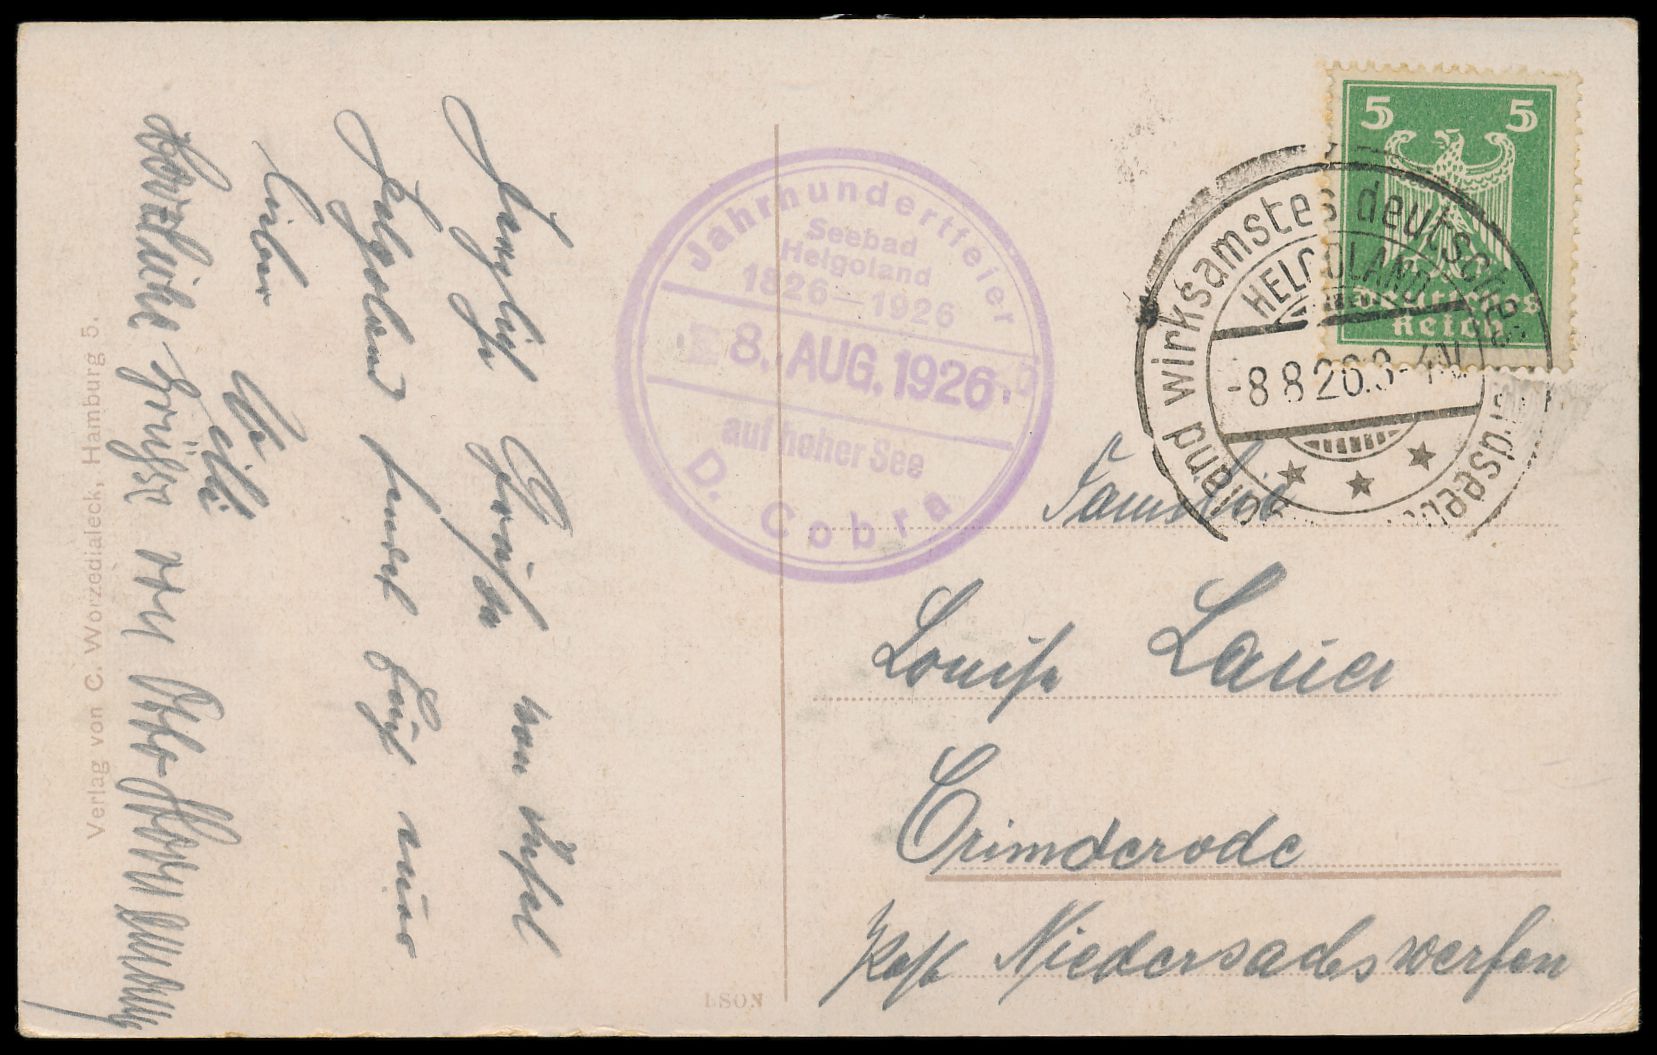 Herzliche Grüße von Insel
Helgoland sendet Euch nur
lieber
Willi
Herzliche Grüße von Otto
Verlag von C. Worzedialeck, Hamburg 5.
Jahrhundertfeier
Seebad
Helgoland
1826—1926
8. AUG. 1926
auf hoher See
D. Cobra
LSON
5 5
Deutsches
Reich
wirksamstes deutsches
HELGOLAND
-8 8 26.
Familie
Louise Lauer
Crimderode
Post Niedersachswerfen